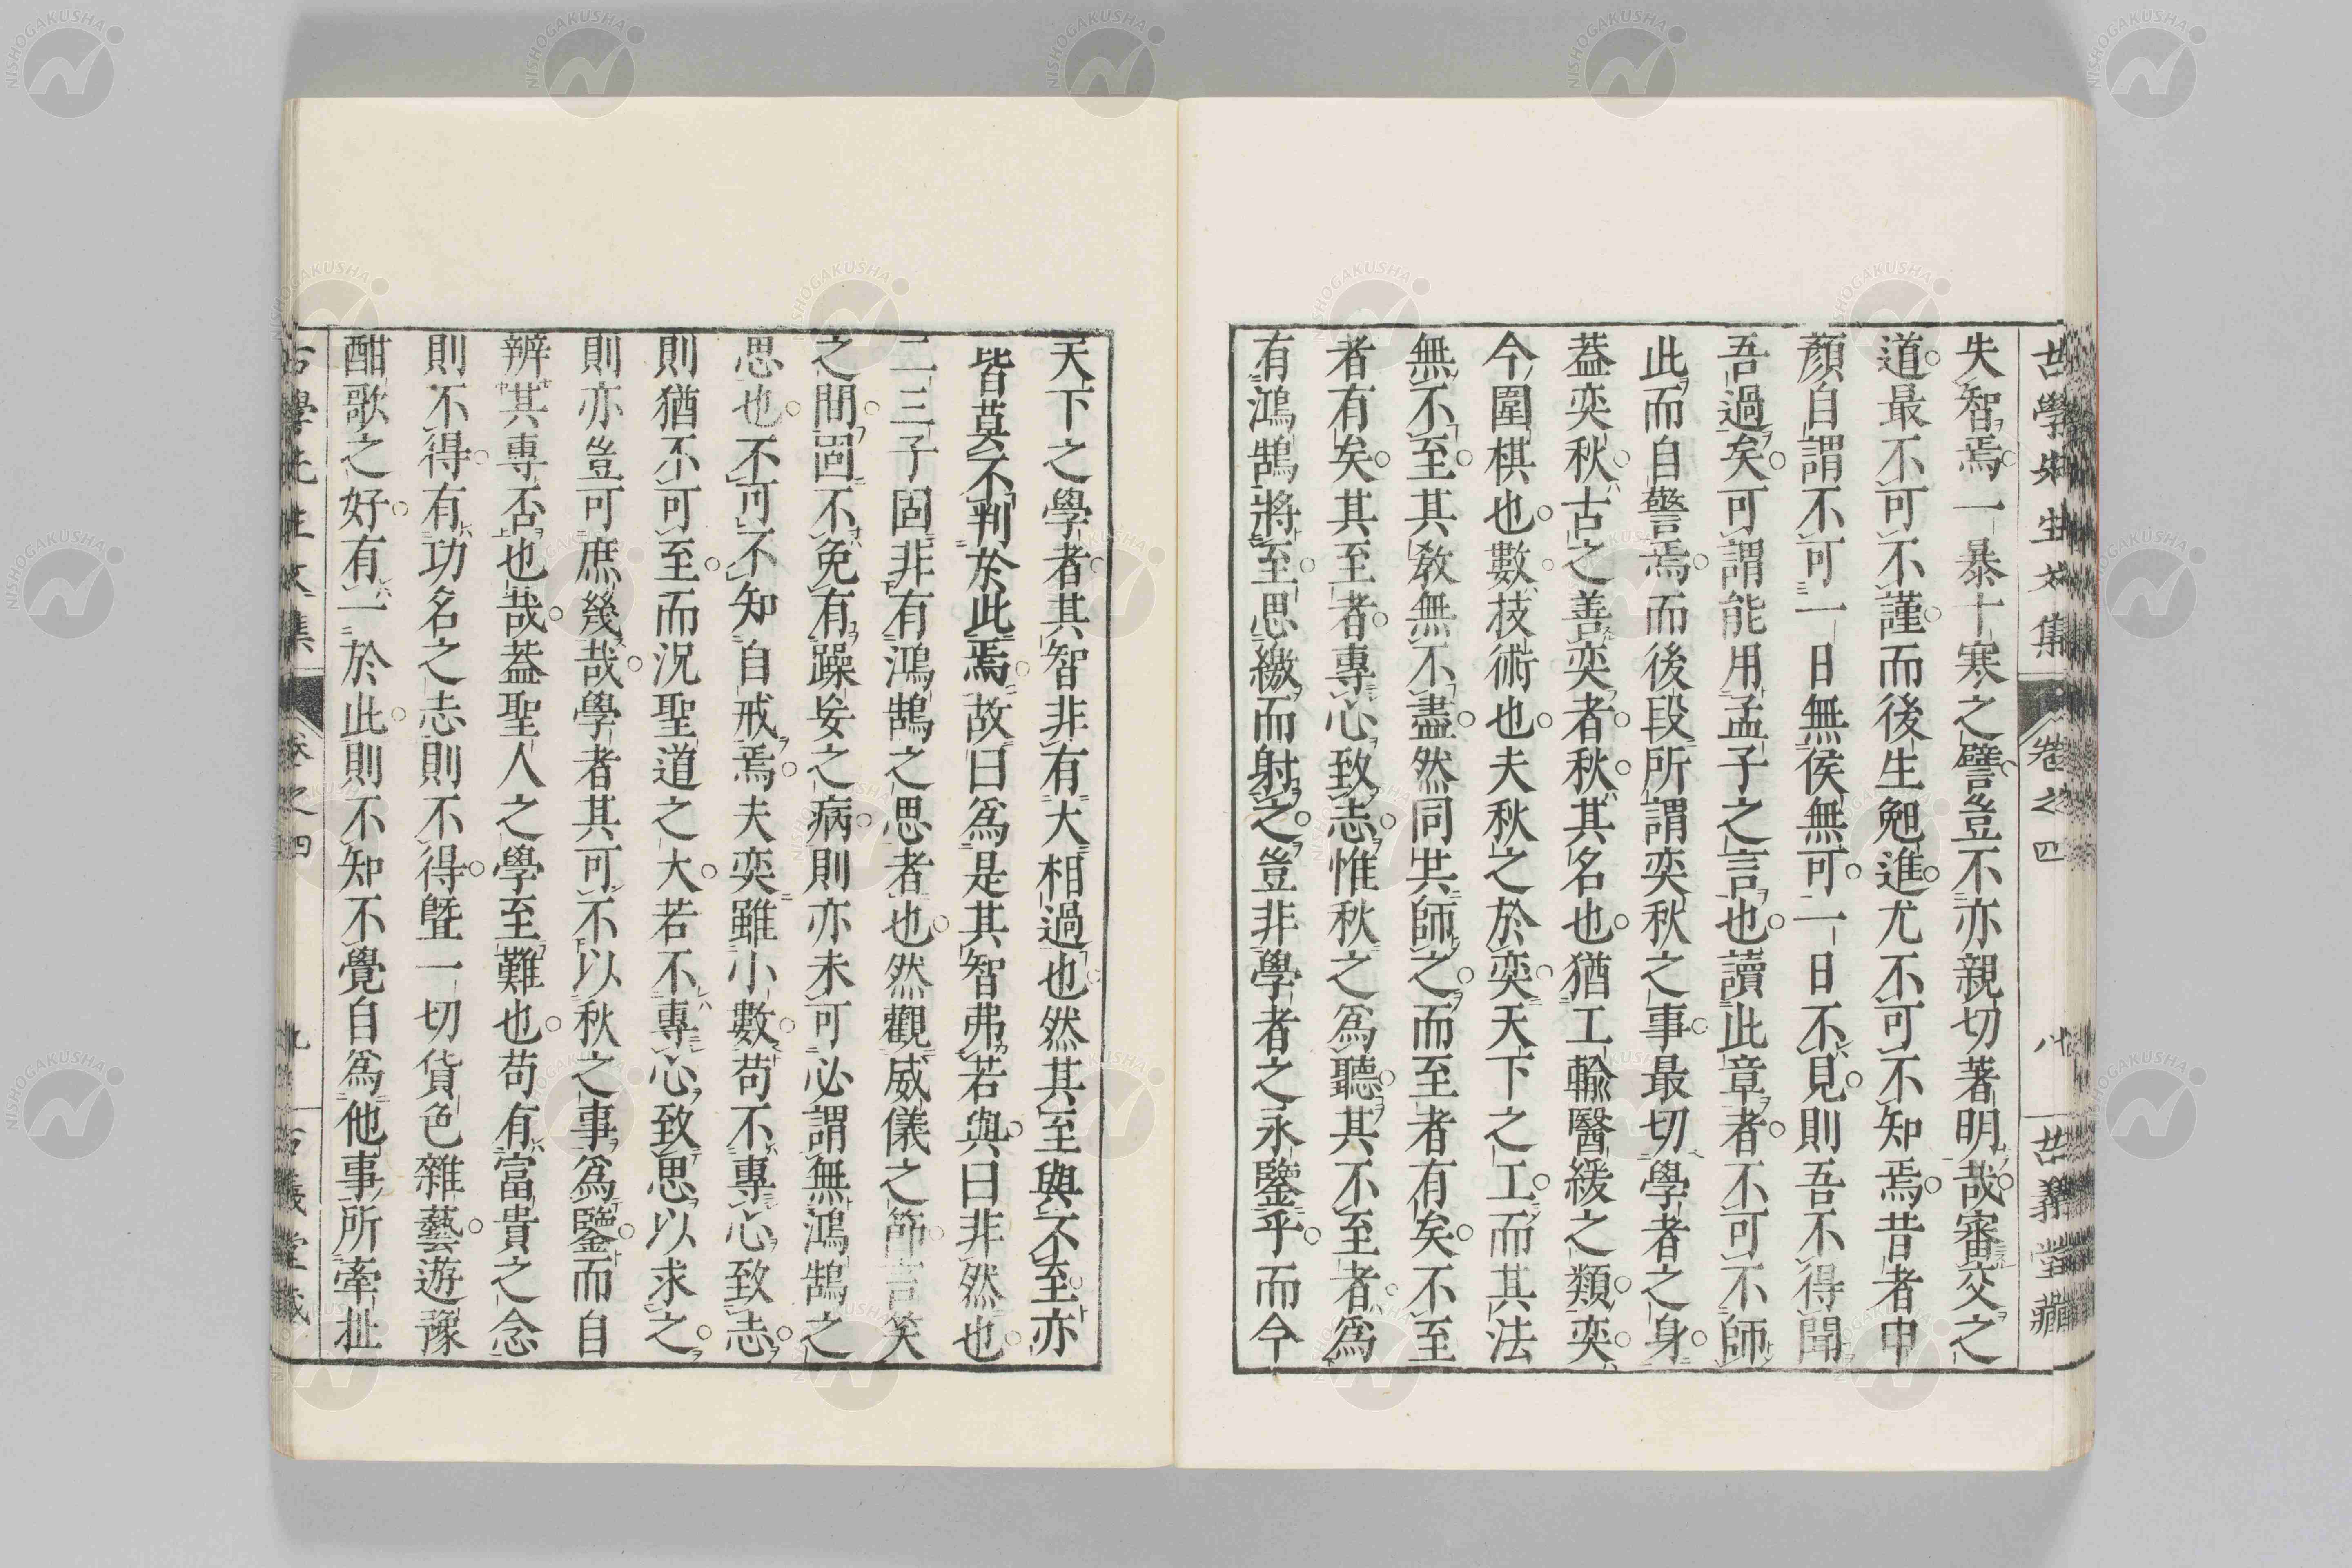 古學先生文集 卷之四 八 古義堂藏
失智焉一暴十寒之譬豈不亦親切著明哉審交之
道最不可不謹而後生勉進尤不可不知焉昔者申
顏自謂不可一日無侯無可一日不見則吾不得聞
吾過矣可謂能用孟子之言也讀此章者不可不師
此而自警焉而後段所謂奕秋之事最切學者之身
蓋奕秋古之善奕者秋其名也猶工輸醫緩之類奕
今圍棋也數技術也夫秋之於奕天下之工而其法
無不至其敎無不盡然同共師之而至者有矣不至
者有矣其至者專心致志惟秋之爲聽其不至者爲
有鴻鵠將至思繳而射之豈非學者之永鑒乎而今
天下之學者其智非有大相過也然其至與不至亦
皆莫不判於此焉故曰爲是其智弗若與曰非然也
二三子固非有鴻鵠之思者也然觀威儀之節言笑
之間固不免有躁妄之病則亦未可必謂無鴻鵠之
思也不可不知自戒焉夫奕雖小數苟不專心致志
則猶不可至而況聖道之大若不專心致思以求之
則亦豈可庶幾哉學者其可不以秋之事爲鑒而自
辨其專否也哉蓋聖人之學至難也苟有富貴之念
則不得有功名之志則不得曁一切貨色雜藝遊豫
酣歌之好有一於此則不知不覺自爲他事所牽扯
古學先生文集 卷之四 九 古義堂藏
NISHOGAKUSHA